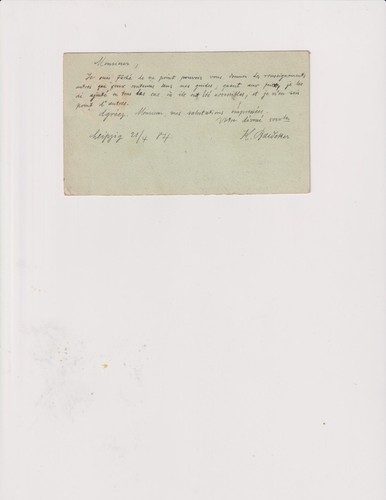 Monsieur,
Je suis fâché de ne point pouvoir vous donner des renseignements
autres que ceux contenus dans nos guides, quant aux prix, je les
ai ajouté en tous les cas où ils ont été accessibles, et je n'en ai
point d'autres.
Agréez, Monsieur, mes salutations empressées
Votre dévoué
Leipzig 21/4 84. K. Baedeker